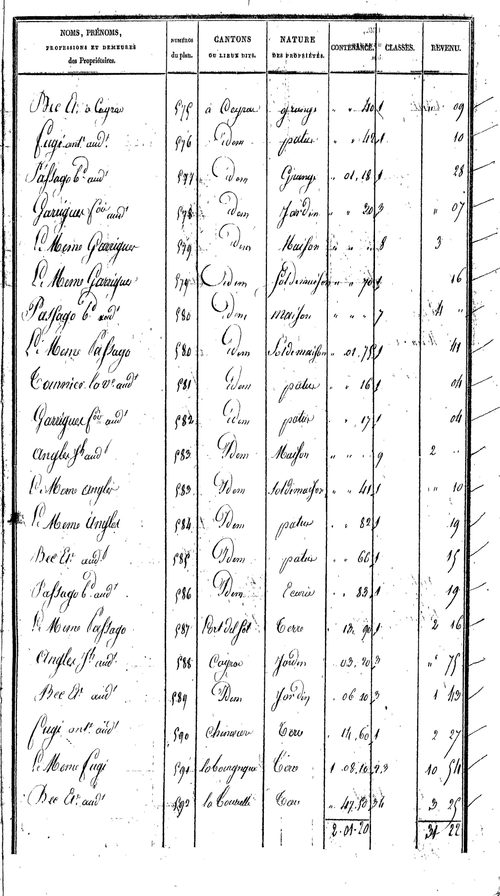 NOMS, PRÉNOMS, PROFESSIONS ET DEMEURES des Propriétaires. NUMÉROS du plan. CANTONS OU LIEUX DITS. NATURE DES PROPRIÉTÉS. CONTENANCE. CLASSES. REVENU.
Bec Et. à Cayrac 575 à Cayrac grange " " 40 1 09
Fugi ant. aud.t 576 Idem patus " " 42 1 10
Passago b.d aud.t 577 idem Grange " 01.18 1 28
Garrigues f.ois aud.t 578 idem Jardin " " 20 3 " 07
Le Meme Garrigues 579 idem Maison " " " 8 3
Le Meme Garrigues 579 Idem Sol de maison " " 70 1 16
Passago b.d aud.t 580 Idem maison " " " 7 4 "
Le Meme Passago 580 idem Sol de maison " 01.75 1 41
Tournier la v.e aud.t 581 idem patus " " 16 1 04
Garrigues f.ois aud.t 582 idem patus " " 17 1 04
Angles J.h aud.t 583 Idem Maison " " " 9 2 "
Le Meme Angles 583 Idem Sol de maison " " 41 1 " 10
Le Meme Angles 584 Idem patus " " 82 1 19
Bec Et. aud.t 585 Idem patus " " 66 1 15
Passago b.d aud.t 586 Idem Ecurie " " 83 1 19
Le Meme Passago 587 Port del fol Terre " 12.90 1 2 16
Angles J.h aud.t 588 Cayrac Jardin " 03.20 3 " 75
Bec Et. aud.t 589 Idem Jardin " 06.10 3 1 43
Fugi ant. aud.t 590 Terre " 14.60 1 2 27
Le Meme Fugi 591 la bourgogne Terre 1 08.10 2.3 10 54
Bec Et. aud.t 592 Terre " 47.50 34 3 25
2.01.20 31 22